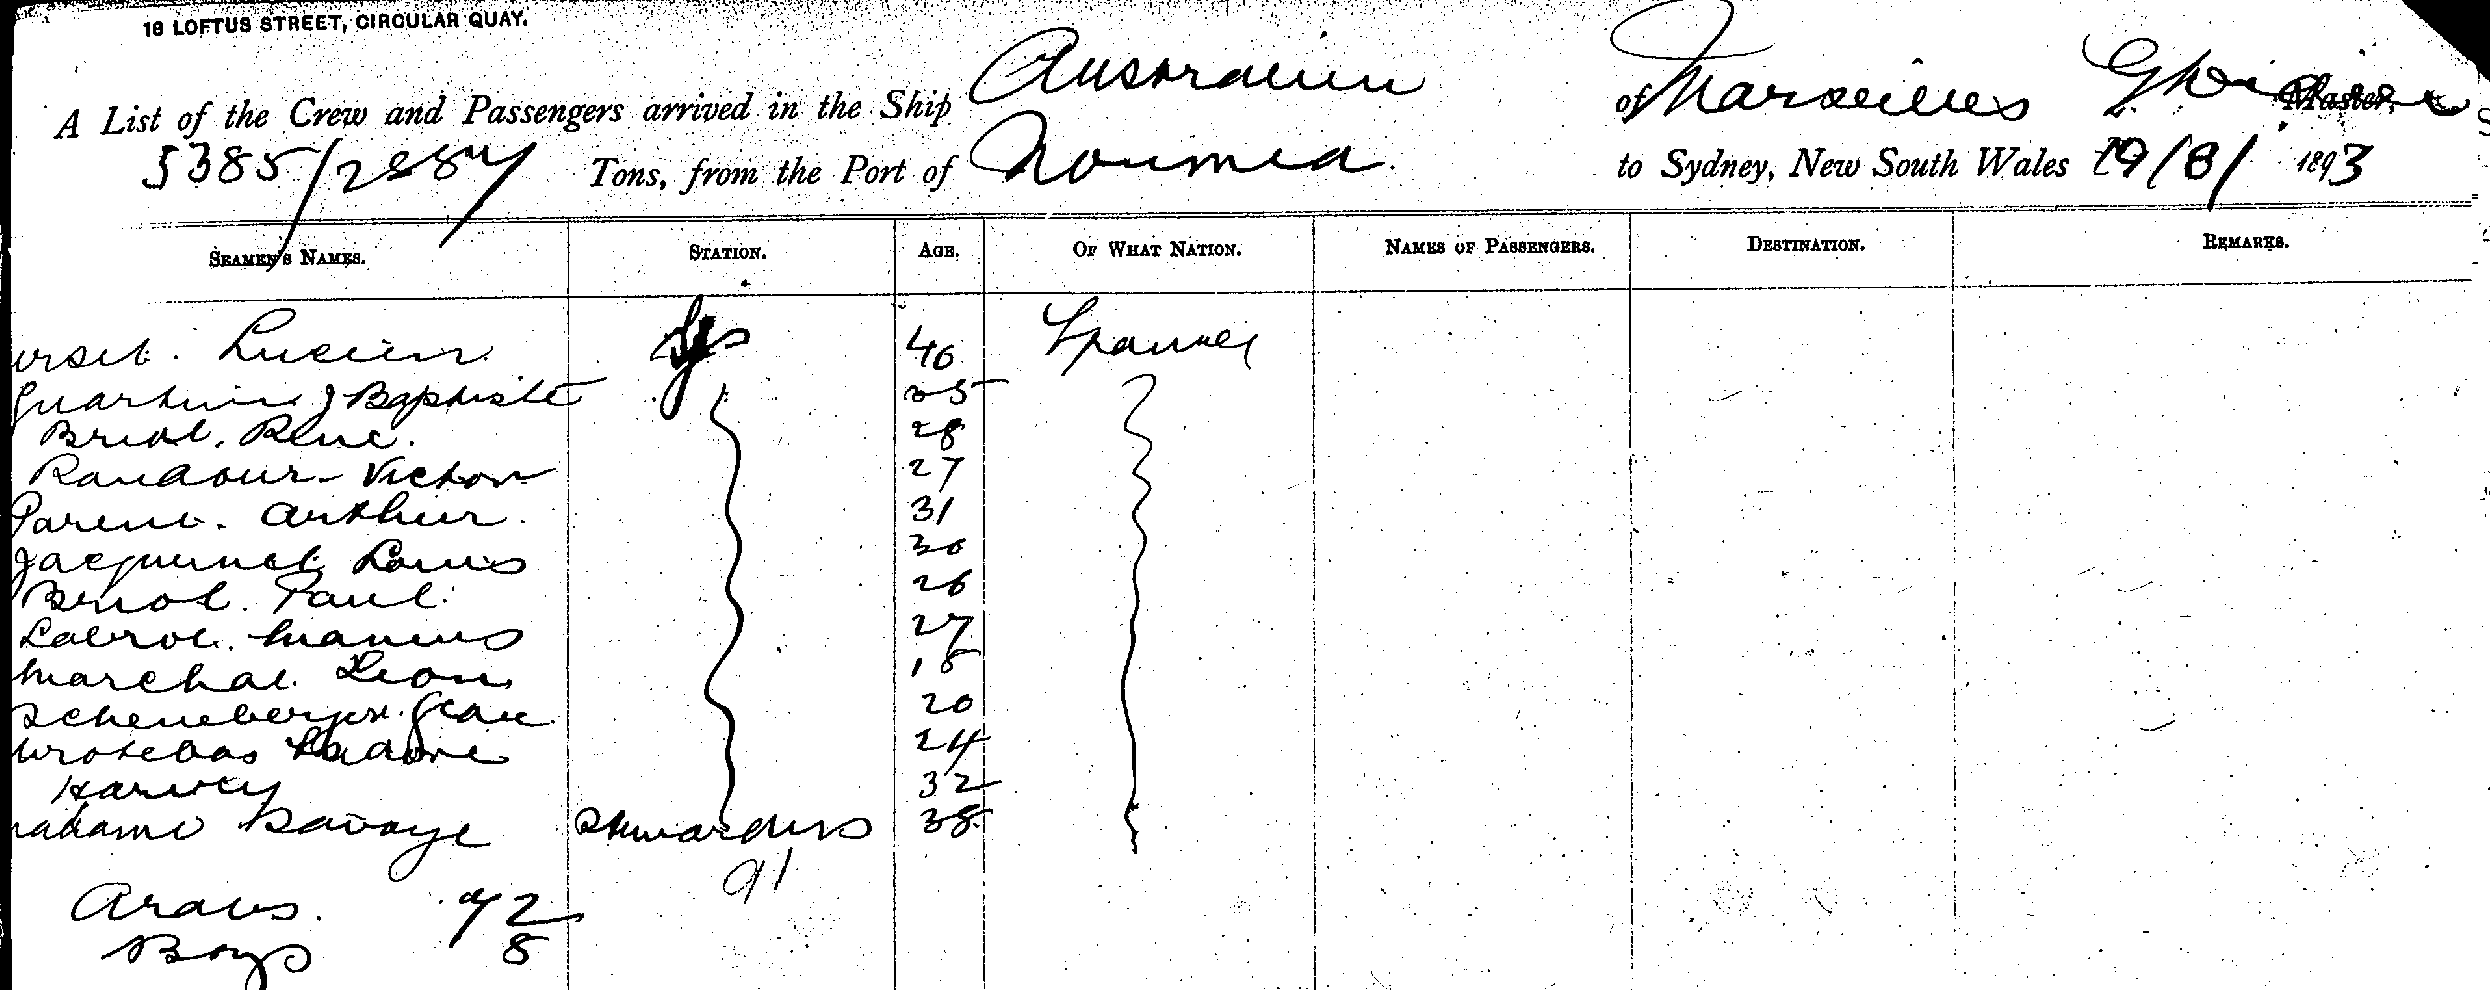 18 LOFTUS STREET, CIRCULAR QUAY.
A List of the Crew and Passengers arrived in the Ship Australien of Marseilles Master,
5385/2887 Tons, from the Port of Noumea to Sydney, New South Wales 19/8/ 1893
SEAMEN'S NAMES. STATION. AGE. OF WHAT NATION. NAMES OF PASSENGERS. DESTINATION. REMARKS.
Lucien 46
J Baptiste 25
Briol. Rene. 28
Randour Victor 27
Parent. Arthur. 31
Jacquinet Louis 30
Briol. Paul. 26
Labrot. Marius 27
Marchal. Leon 18
Jean 20
24
Harvey 32
Madame Savoye Stewardess 38
91
Arabs. 72
Boys 8